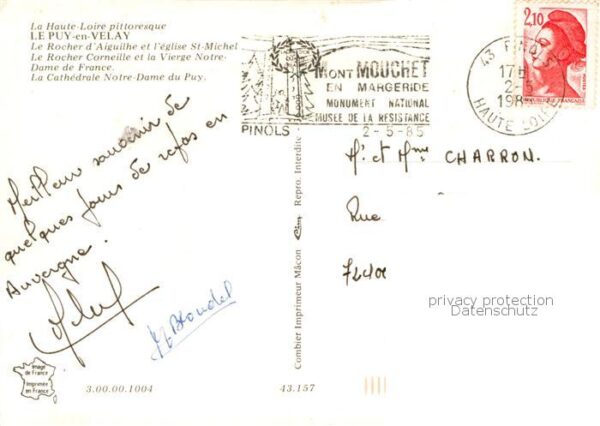 La Haute-Loire pittoresque
LE PUY-en-VELAY
Le Rocher d'Aiguilhe et l'église St-Michel
Le Rocher Corneille et la Vierge Notre-
Dame de France.
La Cathédrale Notre-Dame du Puy.
Meilleur souvenir de
quelques jours de repos en
Auvergne.
M Blondel
Image
de France
Imprimée
en France
3.00.00.1004
43.157
Combier Imprimeur Mâcon Cim Repro. Interdite
MONT MOUCHET
EN MARGERIDE
MONUMENT NATIONAL
MUSEE DE LA RESISTANCE
PINOLS
2-5-85
43 PINOLS
17H
2-5
198
HAUTE LOIRE
2,10
REPUBLIQUE FRANÇAISE
Mr et Mme CHARRON.
Rue
privacy protection
Datenschutz